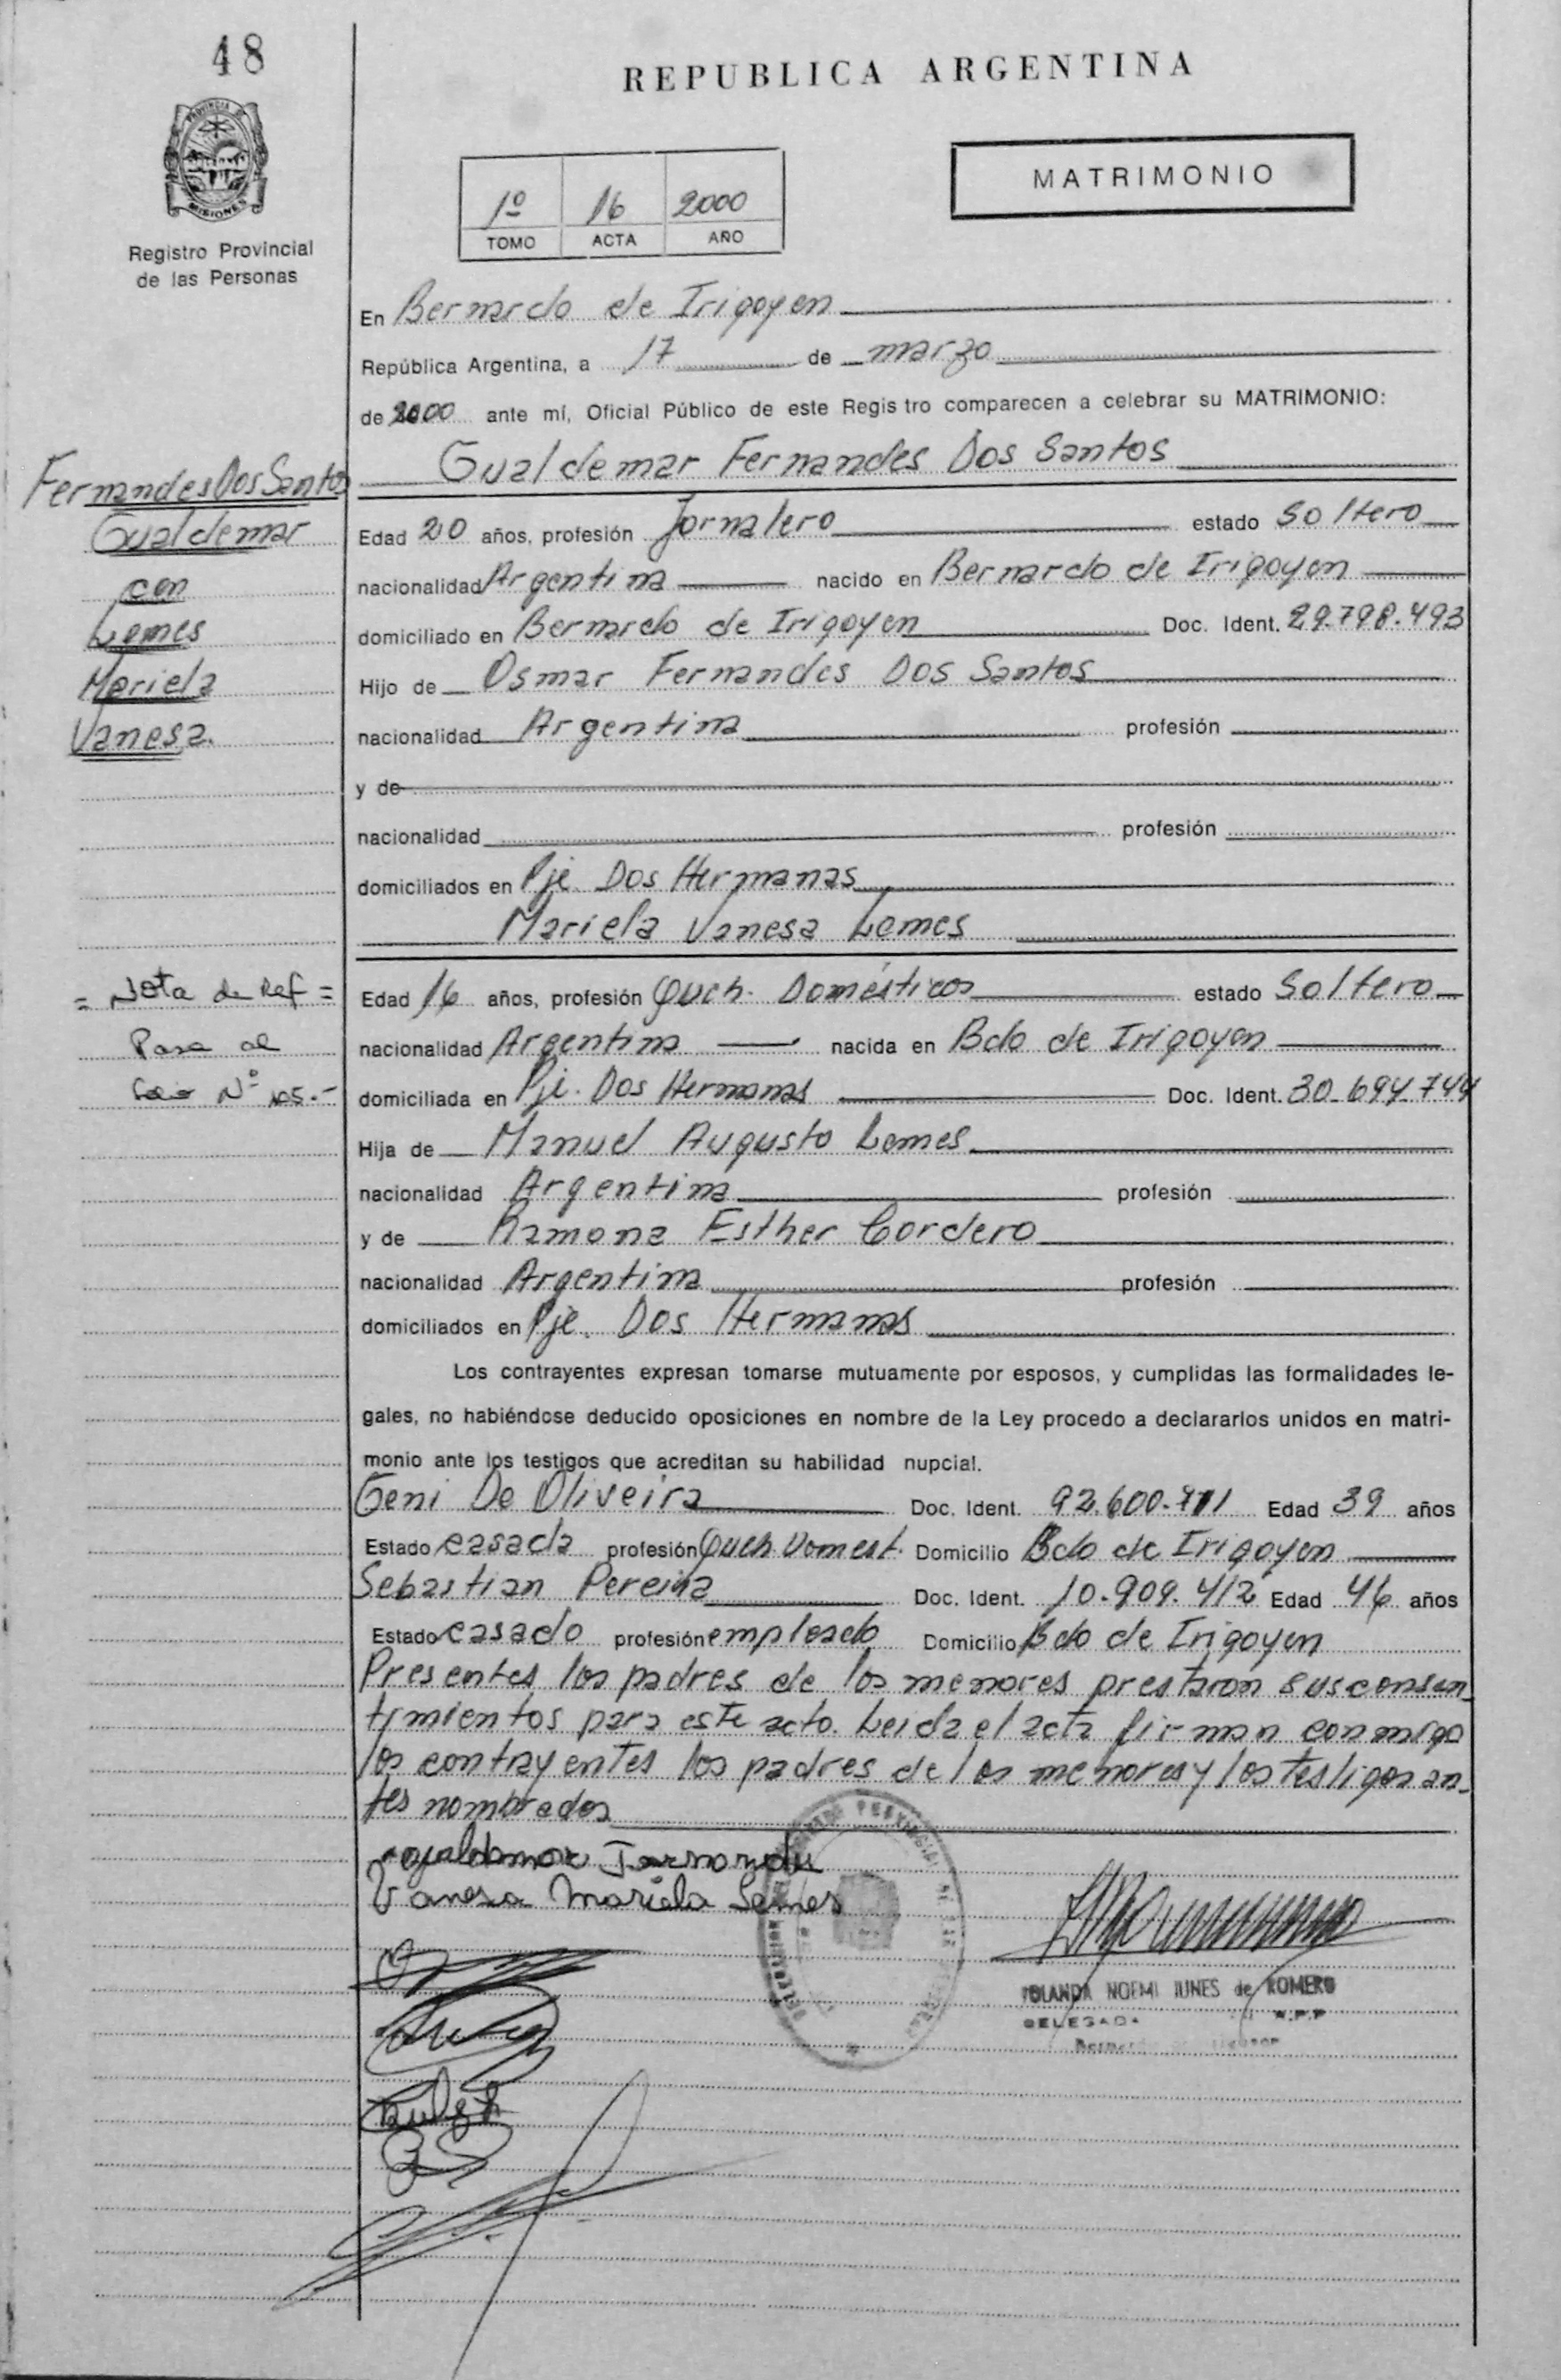 48
REPUBLICA ARGENTINA
PROVINCIA DE
MISIONES
Registro Provincial
de las Personas
1º 16 2000
TOMO ACTA AÑO
MATRIMONIO
En Bernardo de Irigoyen
República Argentina, a 17 de marzo
de 2000 ante mí, Oficial Público de este Regis tro comparecen a celebrar su MATRIMONIO:
Gualdemar Fernandes Dos Santos
Fernandes Dos Santos
Gualdemar
con
Lemes
Mariela
Vanesa.
Edad 20 años, profesión Jornalero estado Soltero
nacionalidad Argentina nacido en Bernardo de Irigoyen
domiciliado en Bernardo de Irigoyen Doc. Ident. 29.798.493
Hijo de Osmar Fernandes Dos Santos
nacionalidad Argentina profesión
y de
nacionalidad profesión
domiciliados en Pje. Dos Hermanas
Mariela Vanesa Lemes
= Nota de Ref =
Pasa al
Nº 105.-
Edad 16 años, profesión Queh. Domésticos estado Soltero
nacionalidad Argentina nacida en Bdo de Irigoyen
domiciliada en Pje. Dos Hermanas Doc. Ident. 30.694.744
Hija de Manuel Augusto Lemes
nacionalidad Argentina profesión
y de Ramona Esther Cordero
nacionalidad Argentina profesión
domiciliados en Pje. Dos Hermanas
Los contrayentes expresan tomarse mutuamente por esposos, y cumplidas las formalidades le-
gales, no habiéndose deducido oposiciones en nombre de la Ley procedo a declararlos unidos en matri-
monio ante los testigos que acreditan su habilidad nupcial.
Geni De Oliveira Doc. Ident. 92.600.711 Edad 39 años
Estado casada profesión Queh. Domest. Domicilio Bdo de Irigoyen
Sebastian Pereira Doc. Ident. 10.909.412 Edad 46 años
Estado casado profesión empleado Domicilio Bdo de Irigoyen
Presentes los padres de los menores prestaron sus consen-
timientos para este acto. Leida el acta firman conmigo
los contrayentes los padres de los menores y los testigos an-
tes nombrados
Vanesa Mariela Lemes
YOLANDA NOEMI IUNES de ROMERO
DELEGADA R.P.P